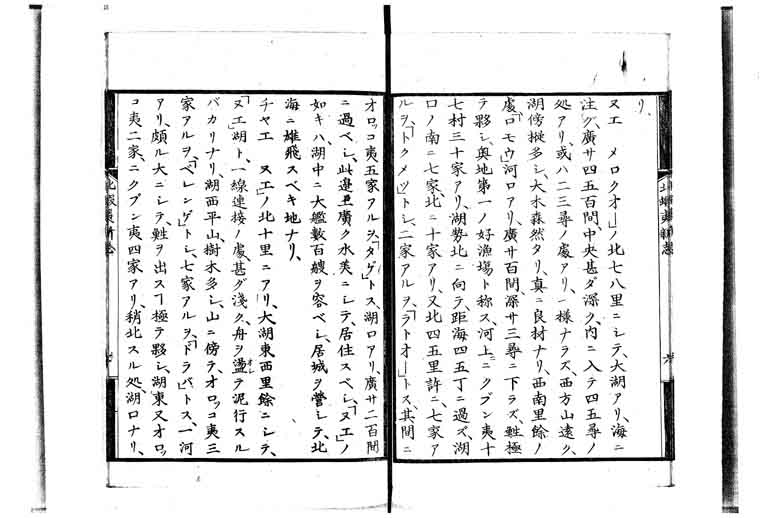 リ、
ヌエ メロクオーノ北七八里ニシテ、大湖アリ、海ニ
注グ、廣サ四五百間、中央甚ダ深ク、内ニ入テ四五尋ノ
処アリ、或ハ二三尋ノ處アリ、一様ナラズ、西方山遠ク、
湖傍樅多シ、大木森然タリ、真ニ良材ナリ、西南里餘ノ
處「ロモウ」河口アリ、廣サ百間、深サ三尋ニ下ラズ、鮏極
テ夥シ、奥地第一ノ好漁場ト称ス、河上ニクブン夷十
七村三十家アリ、湖勢北ニ向テ、距海四五丁ニ過ズ、湖
口ノ南ニ七家、北ニ十家アリ、又北四五里許ニ、七家ア
ルヲ、「トクメツ」トシ、二家アルヲ、「ラトオー」トス、其間ニ
オロッコ夷五家アルヲ、「タゲ」トス、湖口アリ、廣サ二百間
ニ過ベシ、此邊丑廣ク水美ニシテ、居住スベシ、「ヌエ」ノ
如キハ、湖中ニ大艦數百艘ヲ容ベシ、居城ヲ營シテ、北
海ニ雄飛スベキ地ナリ、
チヤエ ヌエノ北十里ニアリ、大湖東西里餘ニシテ、
「ヌエ」湖ト、一線連接ノ處甚グ淺ク、舟ヲ盪テ泥行スル
バカリナリ、湖西平山樹木多シ、山ニ傍テ、オロッコ夷三
家アルヲ、「ベレンゲ」トシ、七家アルヲ、「ドラバ」トス、一河
アリ、頗ル大ニシテ、鮏ヲ出ス丁極テ夥シ、湖東又オロッ
コ夷二家、ニクブン夷四家アリ、稍北スル処、湖口ナリ、